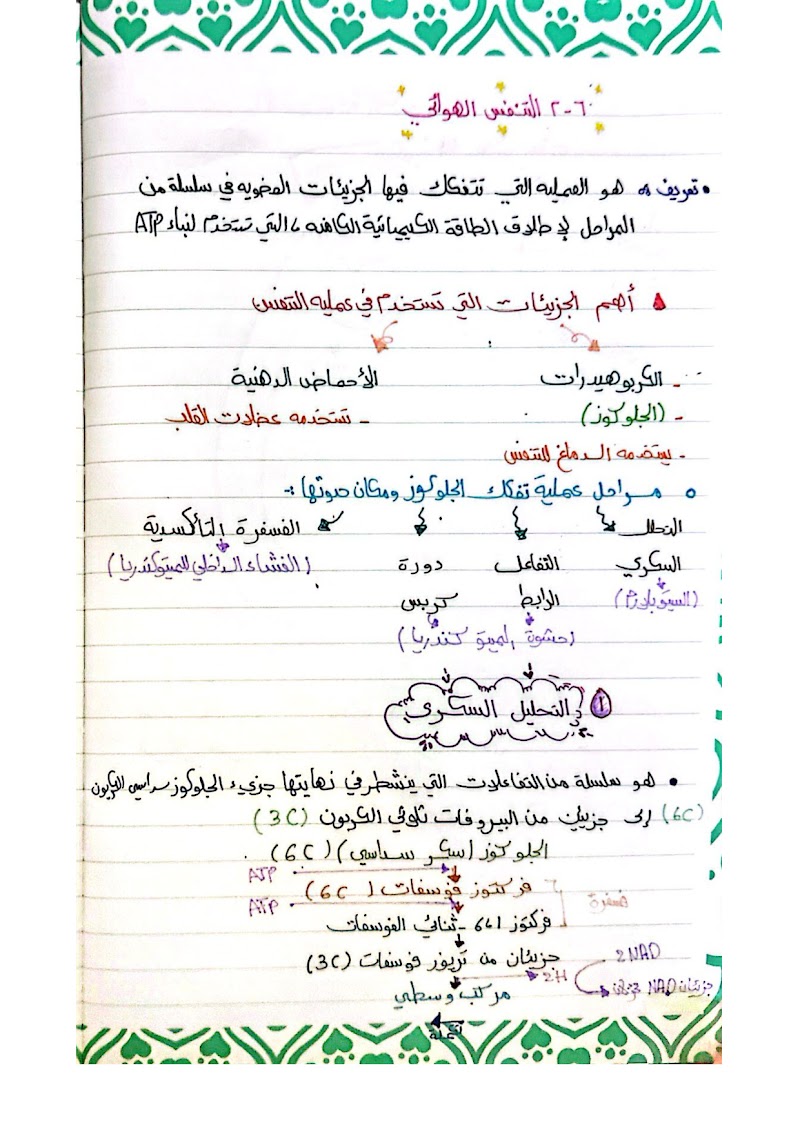 ٢-٦ التنفس الهوائي
• تعريف هو العمليه التي تتفكك فيها الجزيئات العضويه في سلسلة من
المراحل لإطلاق الطاقة الكيميائية الكامنه، التي تستخدم لبناء ATP
أهم الجزيئات التي تستخدم في عمليه التنفس
- الكربوهيدرات الأحماض الدهنية
- (الجلوكوز) - تستخدمه عضلات القلب
- يستخدمه الدماغ للتنفس
مراحل عملية تفكك الجلوكوز ومكان حدوثها :-
التحلل التفاعل دورة الفسفرة التأكسدية
السكري الرابط كربس (الغشاء الداخلي للميتوكندريا)
(السيتوبلازم)
(حشوة الميتوكندريا)
1 التحليل السكري
• هو سلسلة من التفاعلات التي ينشطر في نهايتها جزيء الجلوكوز سداسي الكربون
(6C) إلى جزيئين من البيروفات ثلاثي الكربون (3C)
الجلوكوز (سكر سداسي) (6C)
ATP
فركتوز فوسفات (6C)
فسفرة
ATP
فركتوز 1،6 - ثنائي الفوسفات
جزيئان من تريوز فوسفات (3C)
2NAD
2H
جزيئان NAD مختزلان
مركب وسطي
تكملة